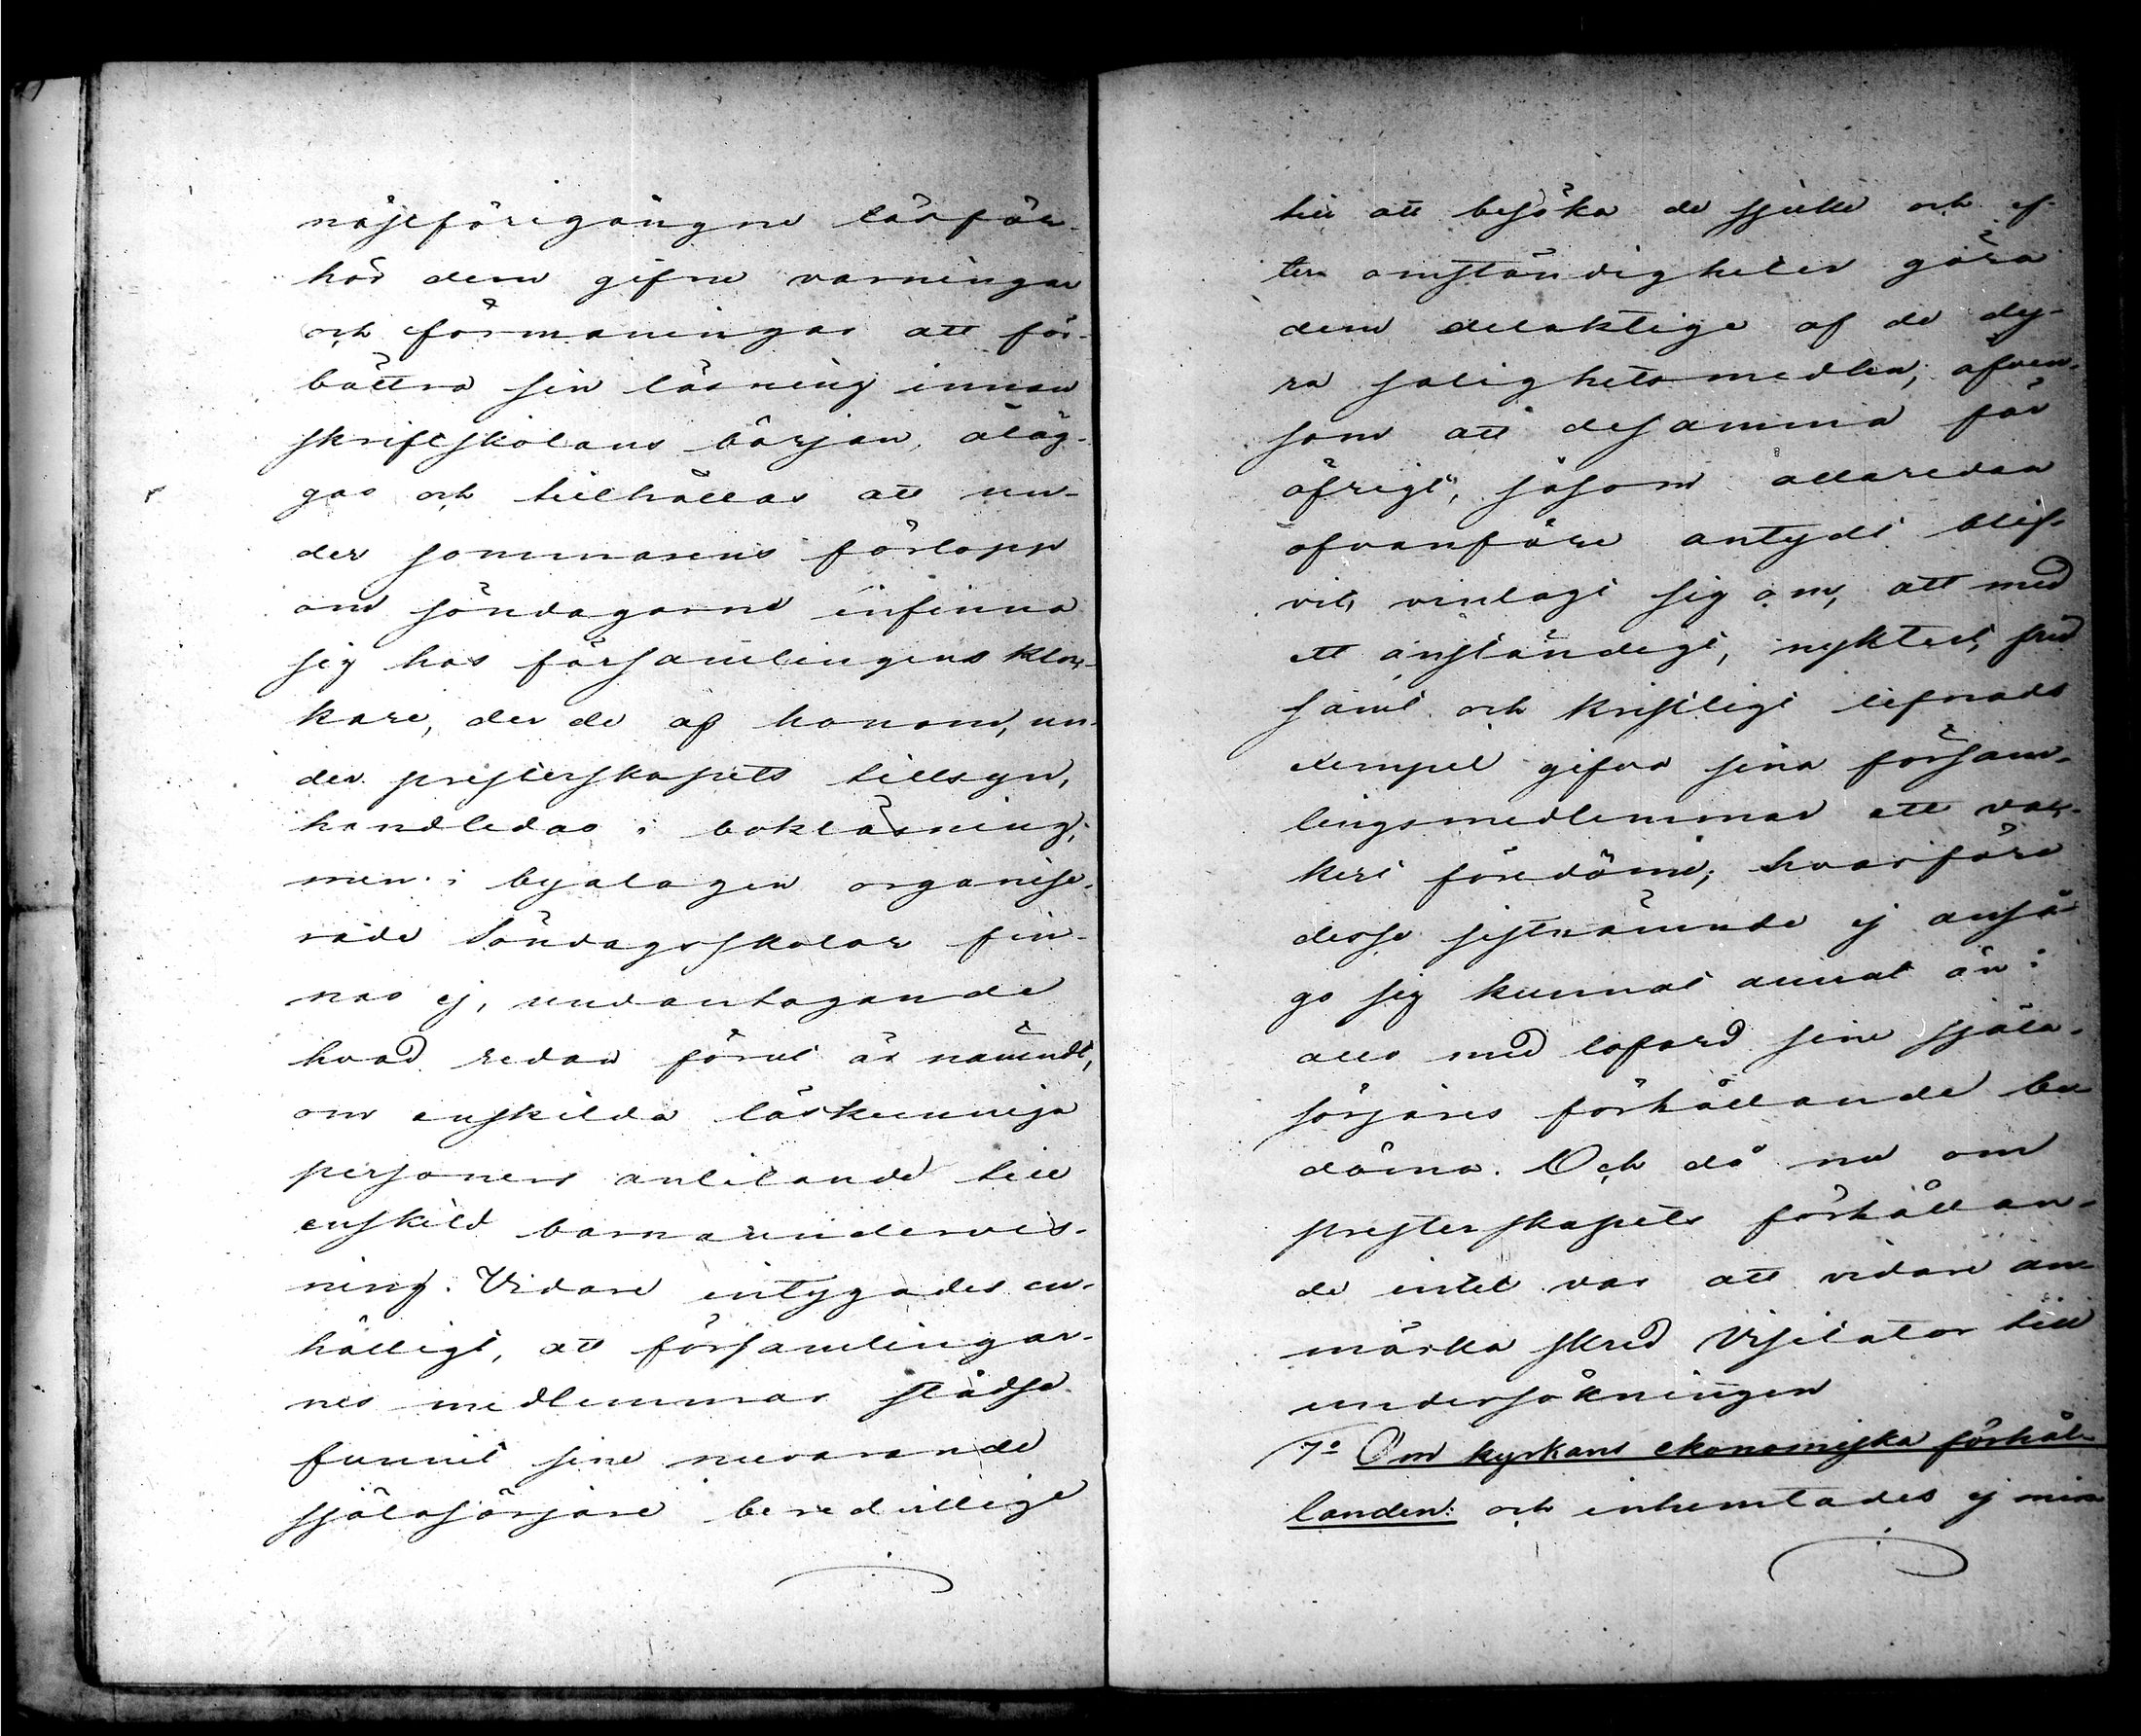 nästföregångne läsför-
hör dem gifne varningar
och förmaningar att för-
bättra sin läsning innan
skriftskolans början, åläg-
gas och tillhållas att un-
der sommarens förlopp
om söndagarne infinna
sig hos församlingens kloc-
kare, der de af honom, un-
der presterskapets tillsyn,
handledas i bokläsning;
men i byalagen organise-
rade Söndagsskolor fin-
nas ej, undantagande
hvad redan förut är nämndt,
om enskilda läskunniga
personers anlitande till
enskild barnaundervis-
ning. Vidare intygades en-
hälligt, att församlingar-
nes medlemmar städse
funnit sine nuvarande
själasörjare beredvillige
till att besöka de sjuke och ef-
ter omständigheter göra
dem delaktige af de dy-
ra salighetsmedlen; äfven-
som att desamma för
öfrigt, såsom allaredan
ofvanföre antydt blif-
vit, vinlagt sig om, att med
ett anständigt, nyktert, frid
samt och kristligt lefnads
exempel gifva sina försam-
lingsmedlemmar ett vac-
kert föredöme; hvarföre
desse sistnämnde ej anså-
go sig kunnat annat än:
allo med loford sine själa-
sörjares förhållande be
döma. Och då nu om
presterskapets förhållan-
de intet var att vidare an-
märka skred Visitator till
undersökningen
7º Om kyrkans ekonomiska förhål-
landen: och inhemtades ej min